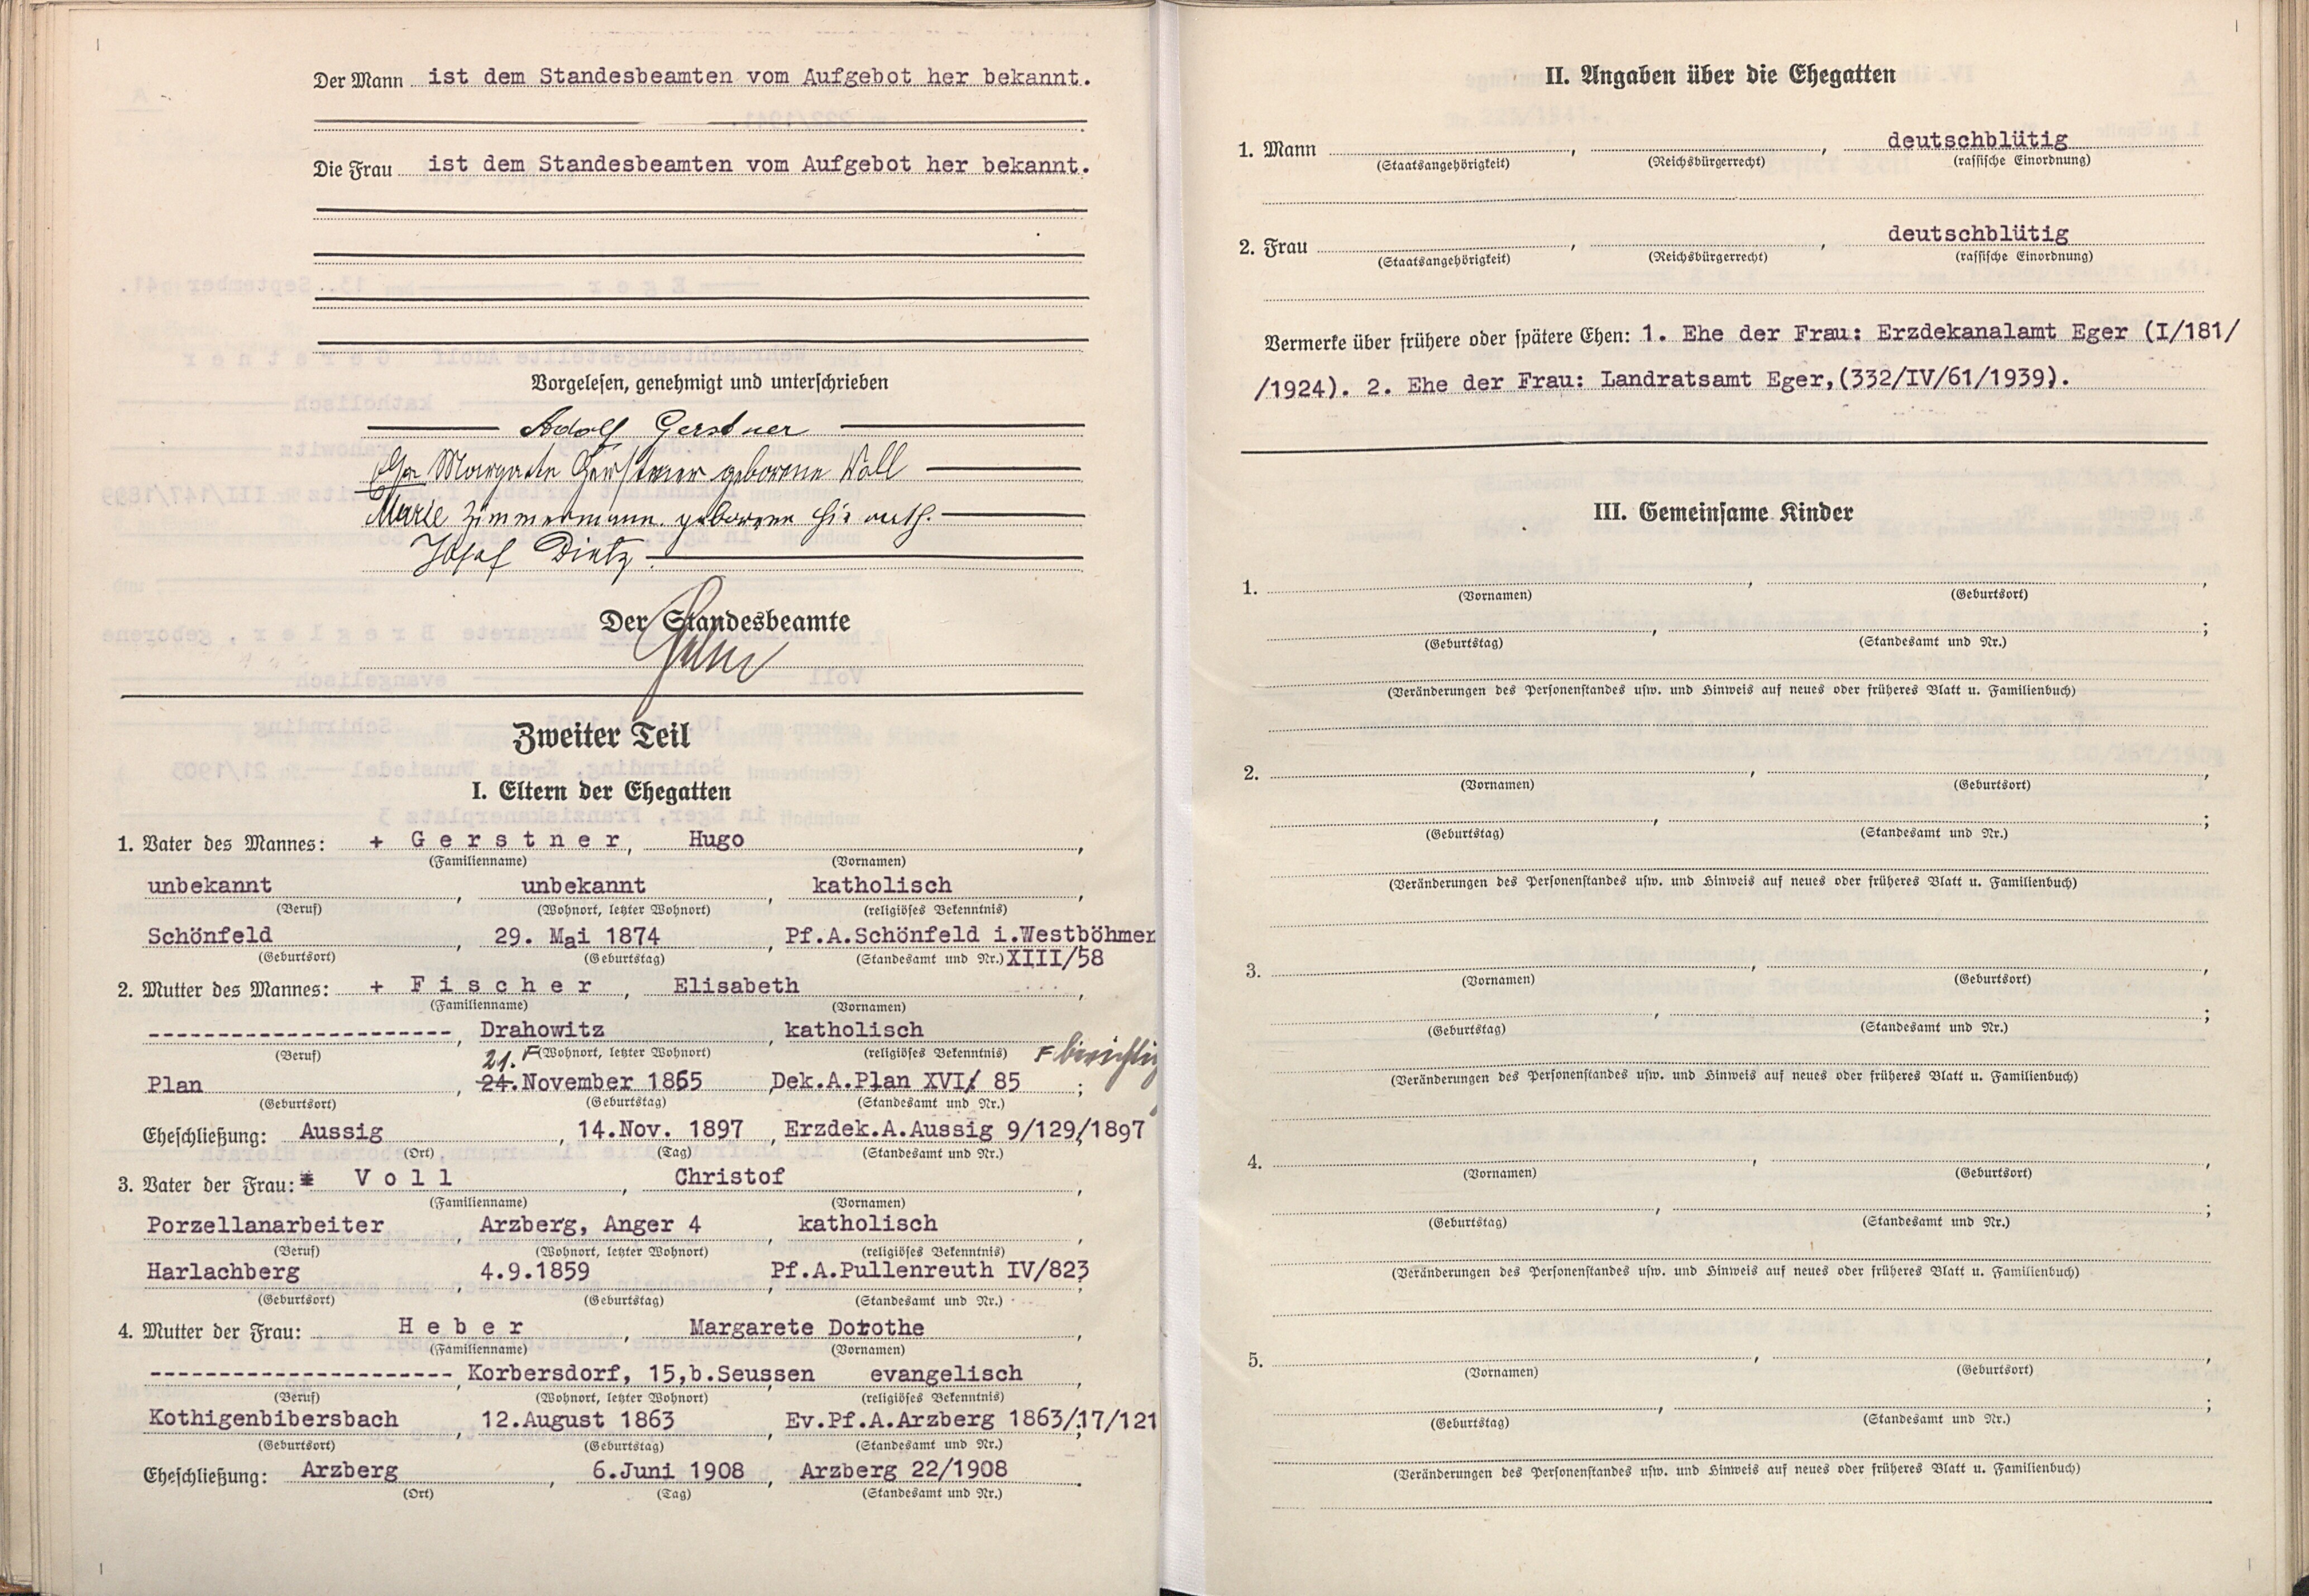 Der Mann ist dem Standesbeamten vom Aufgebot her bekannt.
Die Frau ist dem Standesbeamten vom Aufgebot her bekannt.
Vorgelesen, genehmigt und unterschrieben
Adolf Gerstner
Margarete Gerstner geborene Voll
Marie Zimmermann geborene
Josef Dietz
Der Standesbeamte
Zweiter Teil
I. Eltern der Ehegatten
1. Vater des Mannes: + G e r s t n e r, Hugo,
(Familienname) (Vornamen)
unbekannt, unbekannt, katholisch,
(Beruf) (Wohnort, letzter Wohnort) (religiöses Bekenntnis)
Schönfeld, 29. Mai 1874, Pf.A.Schönfeld i.Westböhmen
(Geburtsort) (Geburtstag) (Standesamt und Nr.) XIII/58
2. Mutter des Mannes: + F i s c h e r, Elisabeth,
(Familienname) (Vornamen)
----------------------, Drahowitz, katholisch,
(Beruf) (Wohnort, letzter Wohnort) (religiöses Bekenntnis)
21. F F
Plan, 24. November 1865, Dek.A.Plan XVI/ 85;
(Geburtsort) (Geburtstag) (Standesamt und Nr.)
Eheschließung: Aussig, 14.Nov. 1897, Erzdek.A.Aussig 9/129/1897
(Ort) (Tag) (Standesamt und Nr.)
3. Vater der Frau: V o l l, Christof,
(Familienname) (Vornamen)
Porzellanarbeiter, Arzberg, Anger 4, katholisch,
(Beruf) (Wohnort, letzter Wohnort) (religiöses Bekenntnis)
Harlachberg, 4.9.1859, Pf.A.Pullenreuth IV/823,
(Geburtsort) (Geburtstag) (Standesamt und Nr.)
4. Mutter der Frau: H e b e r, Margarete Dorothe,
(Familienname) (Vornamen)
----------------------, Korbersdorf, 15,b.Seussen, evangelisch,
(Beruf) (Wohnort, letzter Wohnort) (religiöses Bekenntnis)
Kothigenbibersbach, 12.August 1863, Ev.Pf.A.Arzberg 1863/17/121;
(Geburtsort) (Geburtstag) (Standesamt und Nr.)
Eheschließung: Arzberg, 6.Juni 1908, Arzberg 22/1908.
(Ort) (Tag) (Standesamt und Nr.)
II. Angaben über die Ehegatten
1. Mann , , deutschblütig
(Staatsangehörigkeit) (Reichsbürgerrecht) (rassische Einordnung)
2. Frau , , deutschblütig
(Staatsangehörigkeit) (Reichsbürgerrecht) (rassische Einordnung)
Vermerke über frühere oder spätere Ehen: 1. Ehe der Frau: Erzdekanalamt Eger (I/181/
/1924). 2. Ehe der Frau: Landratsamt Eger,(332/IV/61/1939).
III. Gemeinsame Kinder
1. , ,
(Vornamen) (Geburtsort)
, ;
(Geburtstag) (Standesamt und Nr.)
(Veränderungen des Personenstandes usw. und Hinweis auf neues oder früheres Blatt u. Familienbuch)
2. , ,
(Vornamen) (Geburtsort)
, ;
(Geburtstag) (Standesamt und Nr.)
(Veränderungen des Personenstandes usw. und Hinweis auf neues oder früheres Blatt u. Familienbuch)
3. , ,
(Vornamen) (Geburtsort)
, ;
(Geburtstag) (Standesamt und Nr.)
(Veränderungen des Personenstandes usw. und Hinweis auf neues oder früheres Blatt u. Familienbuch)
4. , ,
(Vornamen) (Geburtsort)
, ;
(Geburtstag) (Standesamt und Nr.)
(Veränderungen des Personenstandes usw. und Hinweis auf neues oder früheres Blatt u. Familienbuch)
5. , ,
(Vornamen) (Geburtsort)
, ;
(Geburtstag) (Standesamt und Nr.)
(Veränderungen des Personenstandes usw. und Hinweis auf neues oder früheres Blatt u. Familienbuch)